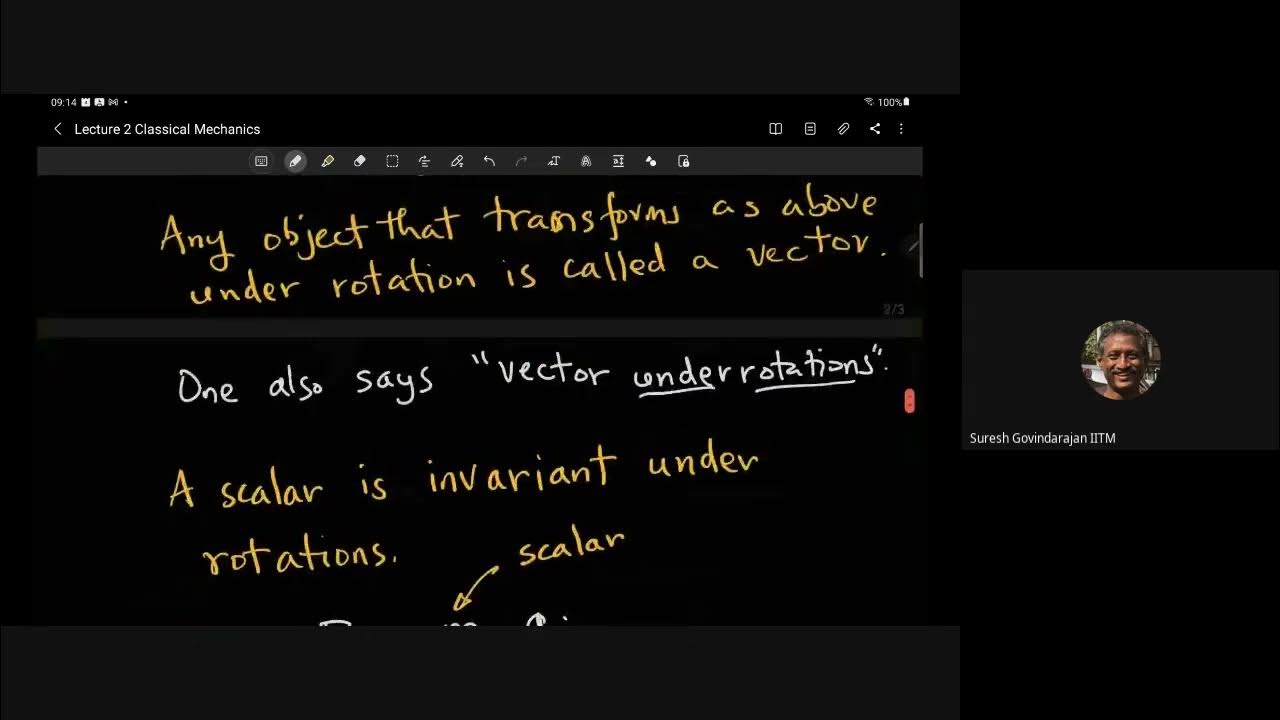 09:14
100%
Lecture 2 Classical Mechanics
Any object that transforms as above
under rotation is called a vector.
2/3
One also says "vector under rotations".
A scalar is invariant under
rotations.
scalar
Suresh Govindarajan IITM